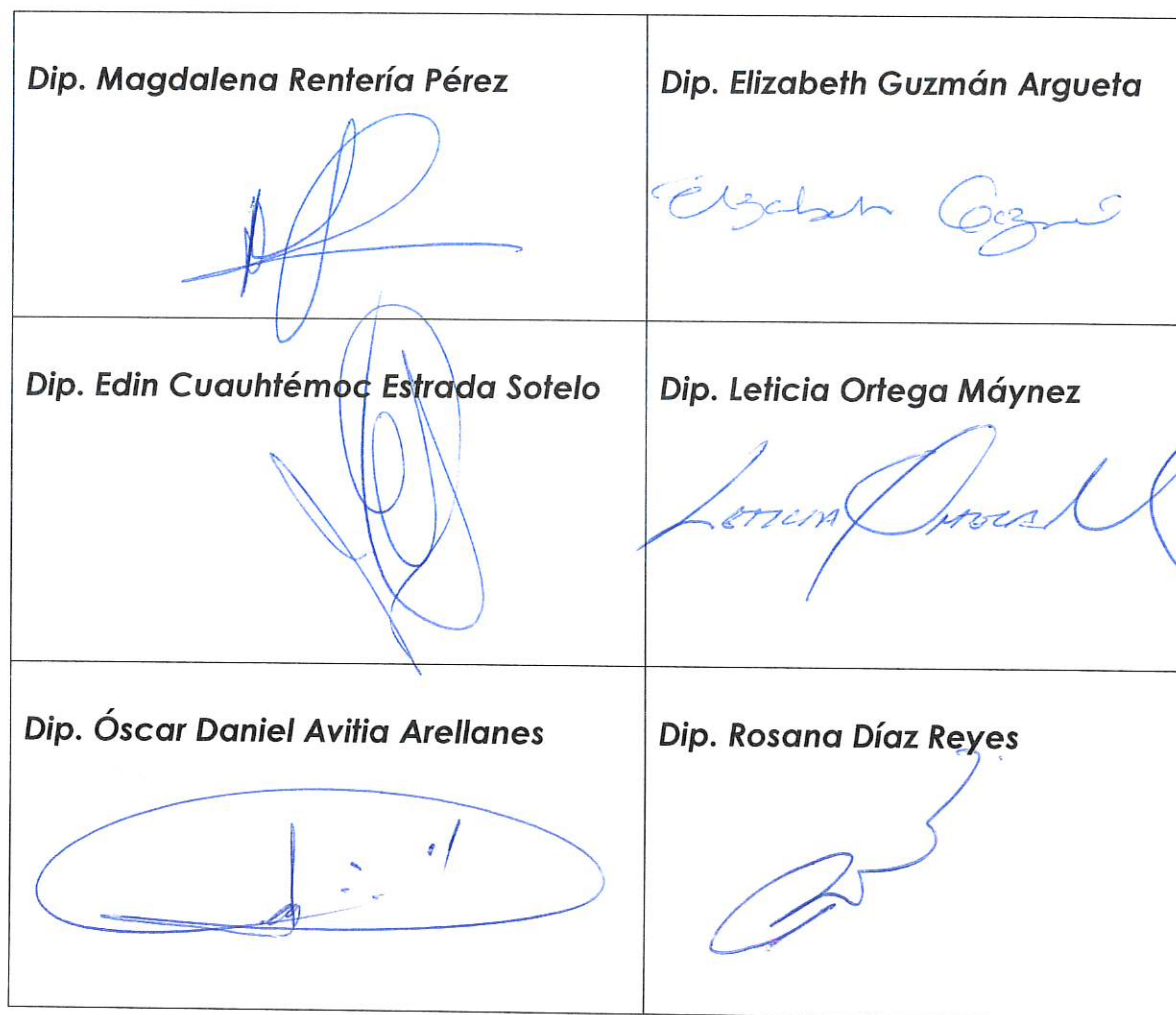 Dip. Magdalena Rentería Pérez
Dip. Elizabeth Guzmán Argueta
Elizabeth Guzmán
Dip. Edin Cuauhtémoc Estrada Sotelo
Dip. Leticia Ortega Máynez
LETICIA ORTEGA M
Dip. Óscar Daniel Avitia Arellanes
Dip. Rosana Díaz Reyes